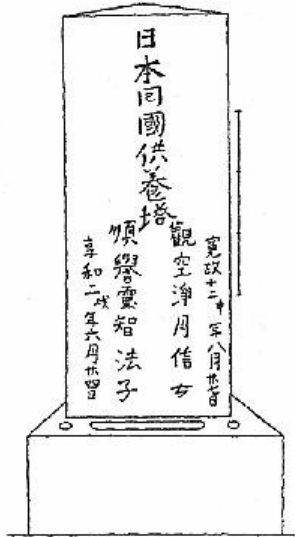 日本回國供養塔
寛政十二申年八月廿七日
觀空淨月信女
順譽靈智法子
享和二戌年六月廿四日